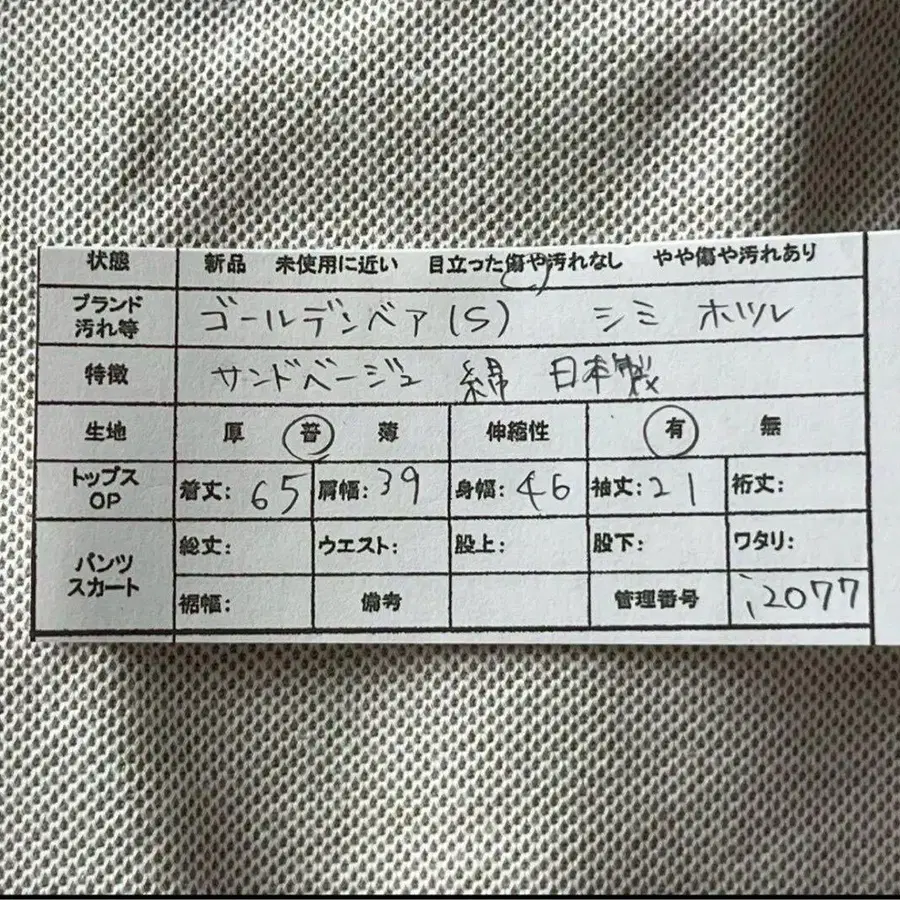 状態 新品 未使用に近い 目立った傷や汚れなし やや傷や汚れあり
ブランド 汚れ等 ゴールデンベア(S) シミ ホツレ
特徴 サンドベージュ 綿 日本製
生地 厚 普 薄 伸縮性 有 無
トップス OP 着丈: 65 肩幅: 39 身幅: 46 袖丈: 21 裄丈:
パンツ スカート 総丈: ウエスト: 股上: 股下: ワタリ:
裾幅: 備考 管理番号 i2077